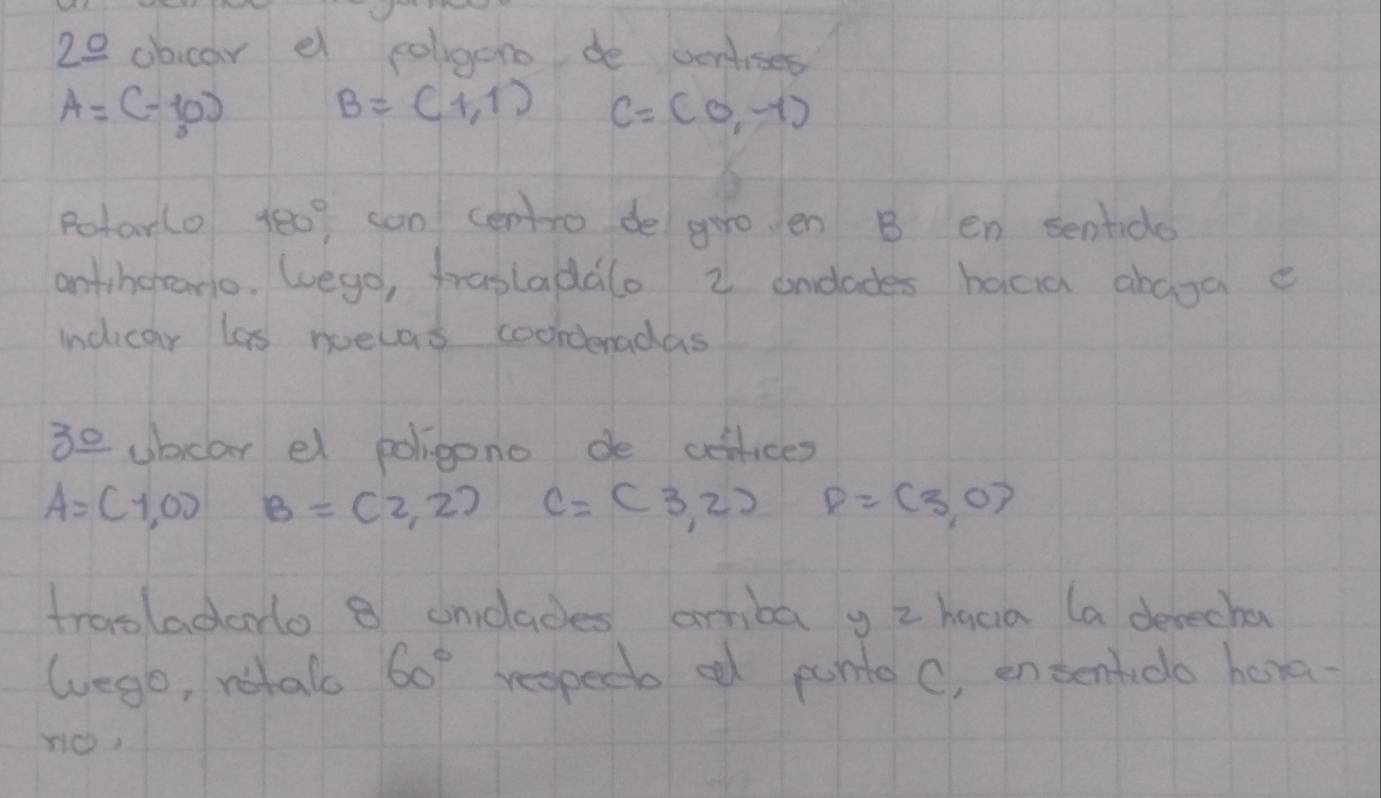 2º ubicar el poligono de vertises
A = (-1,0) B = (1,1) C = (0,-1)
Rotarlo 180°, con centro de giro en B en sentido
antihorario. luego, trasladálo 2 unidades hacia abaja e
indicar las nuevas coordenadas
3º ubicar el polígono de vértices
A = (1,0) B = (2,2) C = (3,2) D = (3,0)
trasladarlo 8 unidades arriba y 2 hacia la derecha
luego, rótalo 60° respecto al punto C, en sentido hora-
rio.